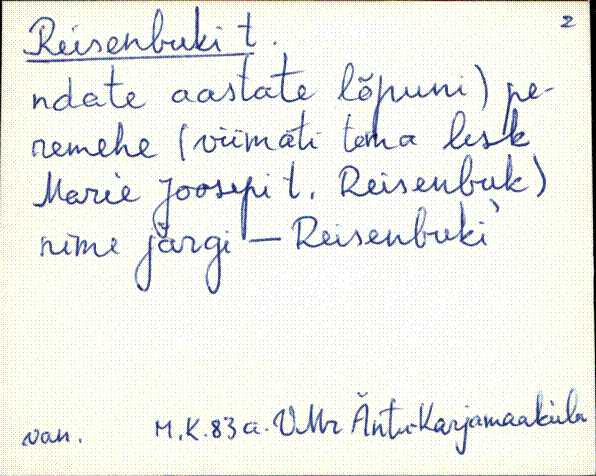 Reisenbuki t. 2
ndate aastate lõpuni) pe-
remehe (viimati tema lesk
Marie Joosepi t. Reisenbuk)
nime järgi — Reisenbuki
van. M.K. 83 a. VMr Äntu-Karjamaaküla